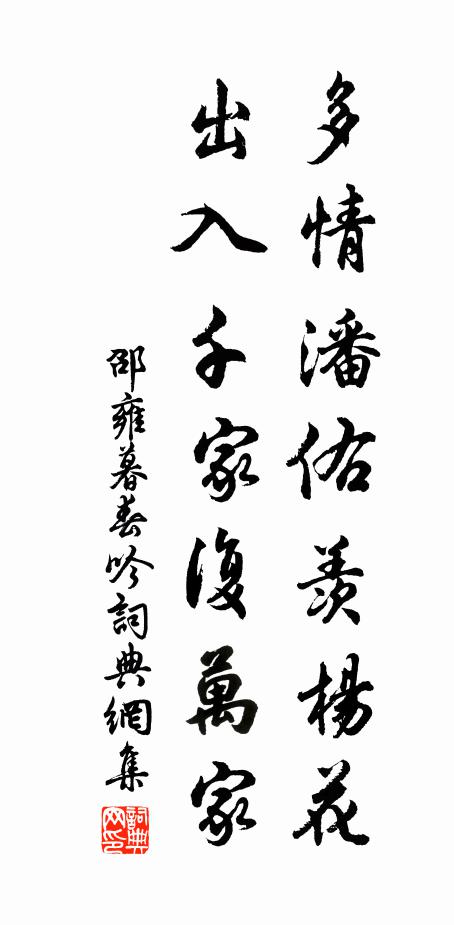 多情潘佑羨楊花
出入千家復萬家
邵雍暮春吟詞典網集
詞典网印